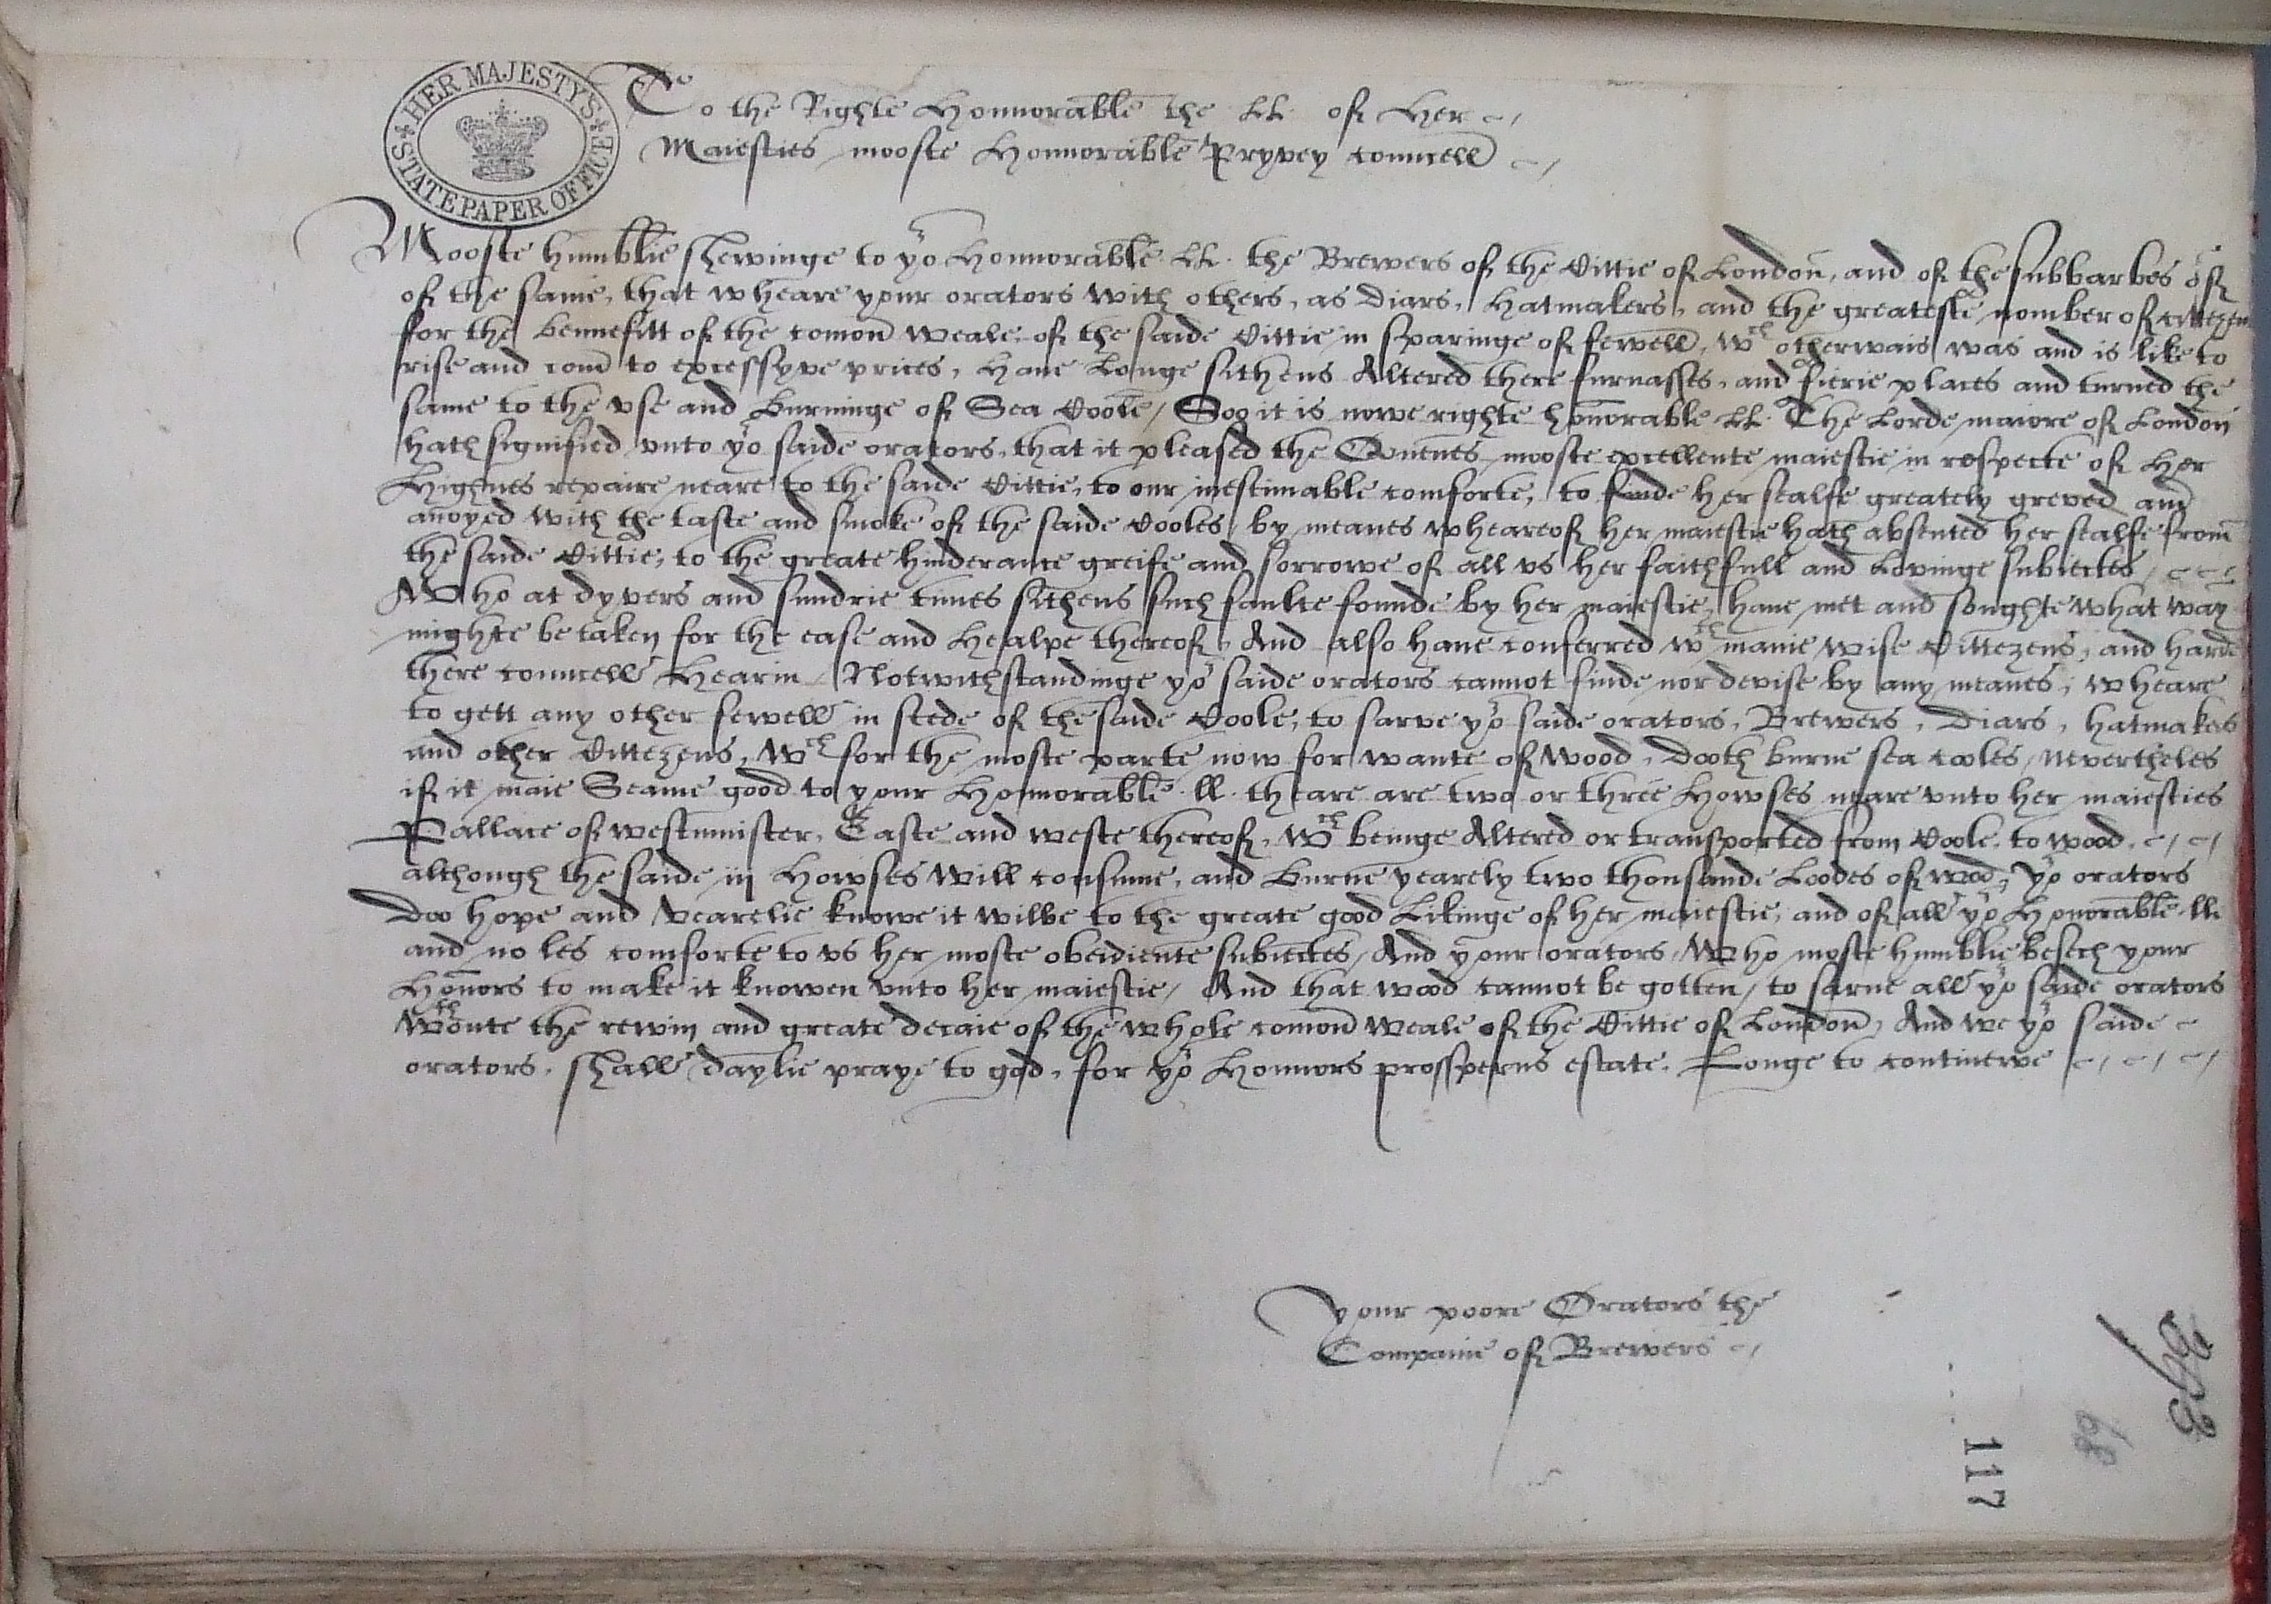 HER MAJESTY'S STATE PAPER OFFICE
To the Righte Honnorable the LL. of Her
Maiesties mooste Honnorable Pryvey councell
Mooste humblie shewinge to yor Honnorable LL. the Brewers of the Cittie of London, and of the subbarbes of
of the same, that wheare your orators with others, as Diars, Hatmakers, and the greateste nomber of Cittezens
for the bennefitt of the comon weale, of the saide Cittie in sparinge of fewell, wch otherwais was and is like to
rise and com to excessyve prices, Haue Longe sithens Altered there furnasses, and fierie places and turned the
same to the vse and Burninge of Sea Coole / Soo it is nowe righte honorable LL. The Lorde maiore of London
hath signified vnto yor saide orators, that it pleased the Quenes mooste excellente maiestie in respecte of Her
Highnes repaire neare to the saide Cittie, to our inestimable comforte, to finde her sealfe greately greved and
anoyed with the taste and smoke of the saide Cooles / by meanes wheareof her maiestie hath absented her sealfe from
the saide Cittie, to the greate hinderance greife and sorrowe of all vs her faithfull and Lovinge subiectes
Who at dyvers and sundrie times sithens such faulte founde by her maiestie, haue met and soughte what way
mighte be taken for the ease and Healpe thereof, And also haue conferred wth manie wise Cittezens, and harde
there councell Hearin / Notwithstandinge yor saide orators cannot finde nor devise by any meanes, wheare
to gett any other fewell in stede of the saide Coole, to sarve yor saide orators, Brewers, Diars, hatmakers
and other Cittezens, wch for the moste parte now for wante of wood, dooth burne sea cooles / Nevertheles
if it maie Seame good to your Honnorable ll. theare are two or three Howses neare vnto her maiesties
Pallace of westminster, Easte and weste thereof, wch beinge Altered or transported from Coole, to wood,
although the saide iij Howses will consume, and Burne yearely two thousande Loodes of wood, yor orators
Doo hope and vearelie knowe it wilbe to the greate good Likinge of her maiestie, and of all yor Honorable ll.
and no les comforte to vs her moste obeidiente subiectes / And your orators, Who moste humblie besech your
Honnors to make it knowen vnto her maiestie / And that wood cannot be gotten / to sarue all yor saide orators
wthoute the rewin and greate decaie of the whole comon weale of the Cittie of London, And we yor saide
orators, shall daylie praye to god, for yor Honnors prossperus estate. Longe to continewe
your poore Orators the
Companie of Brewers
117